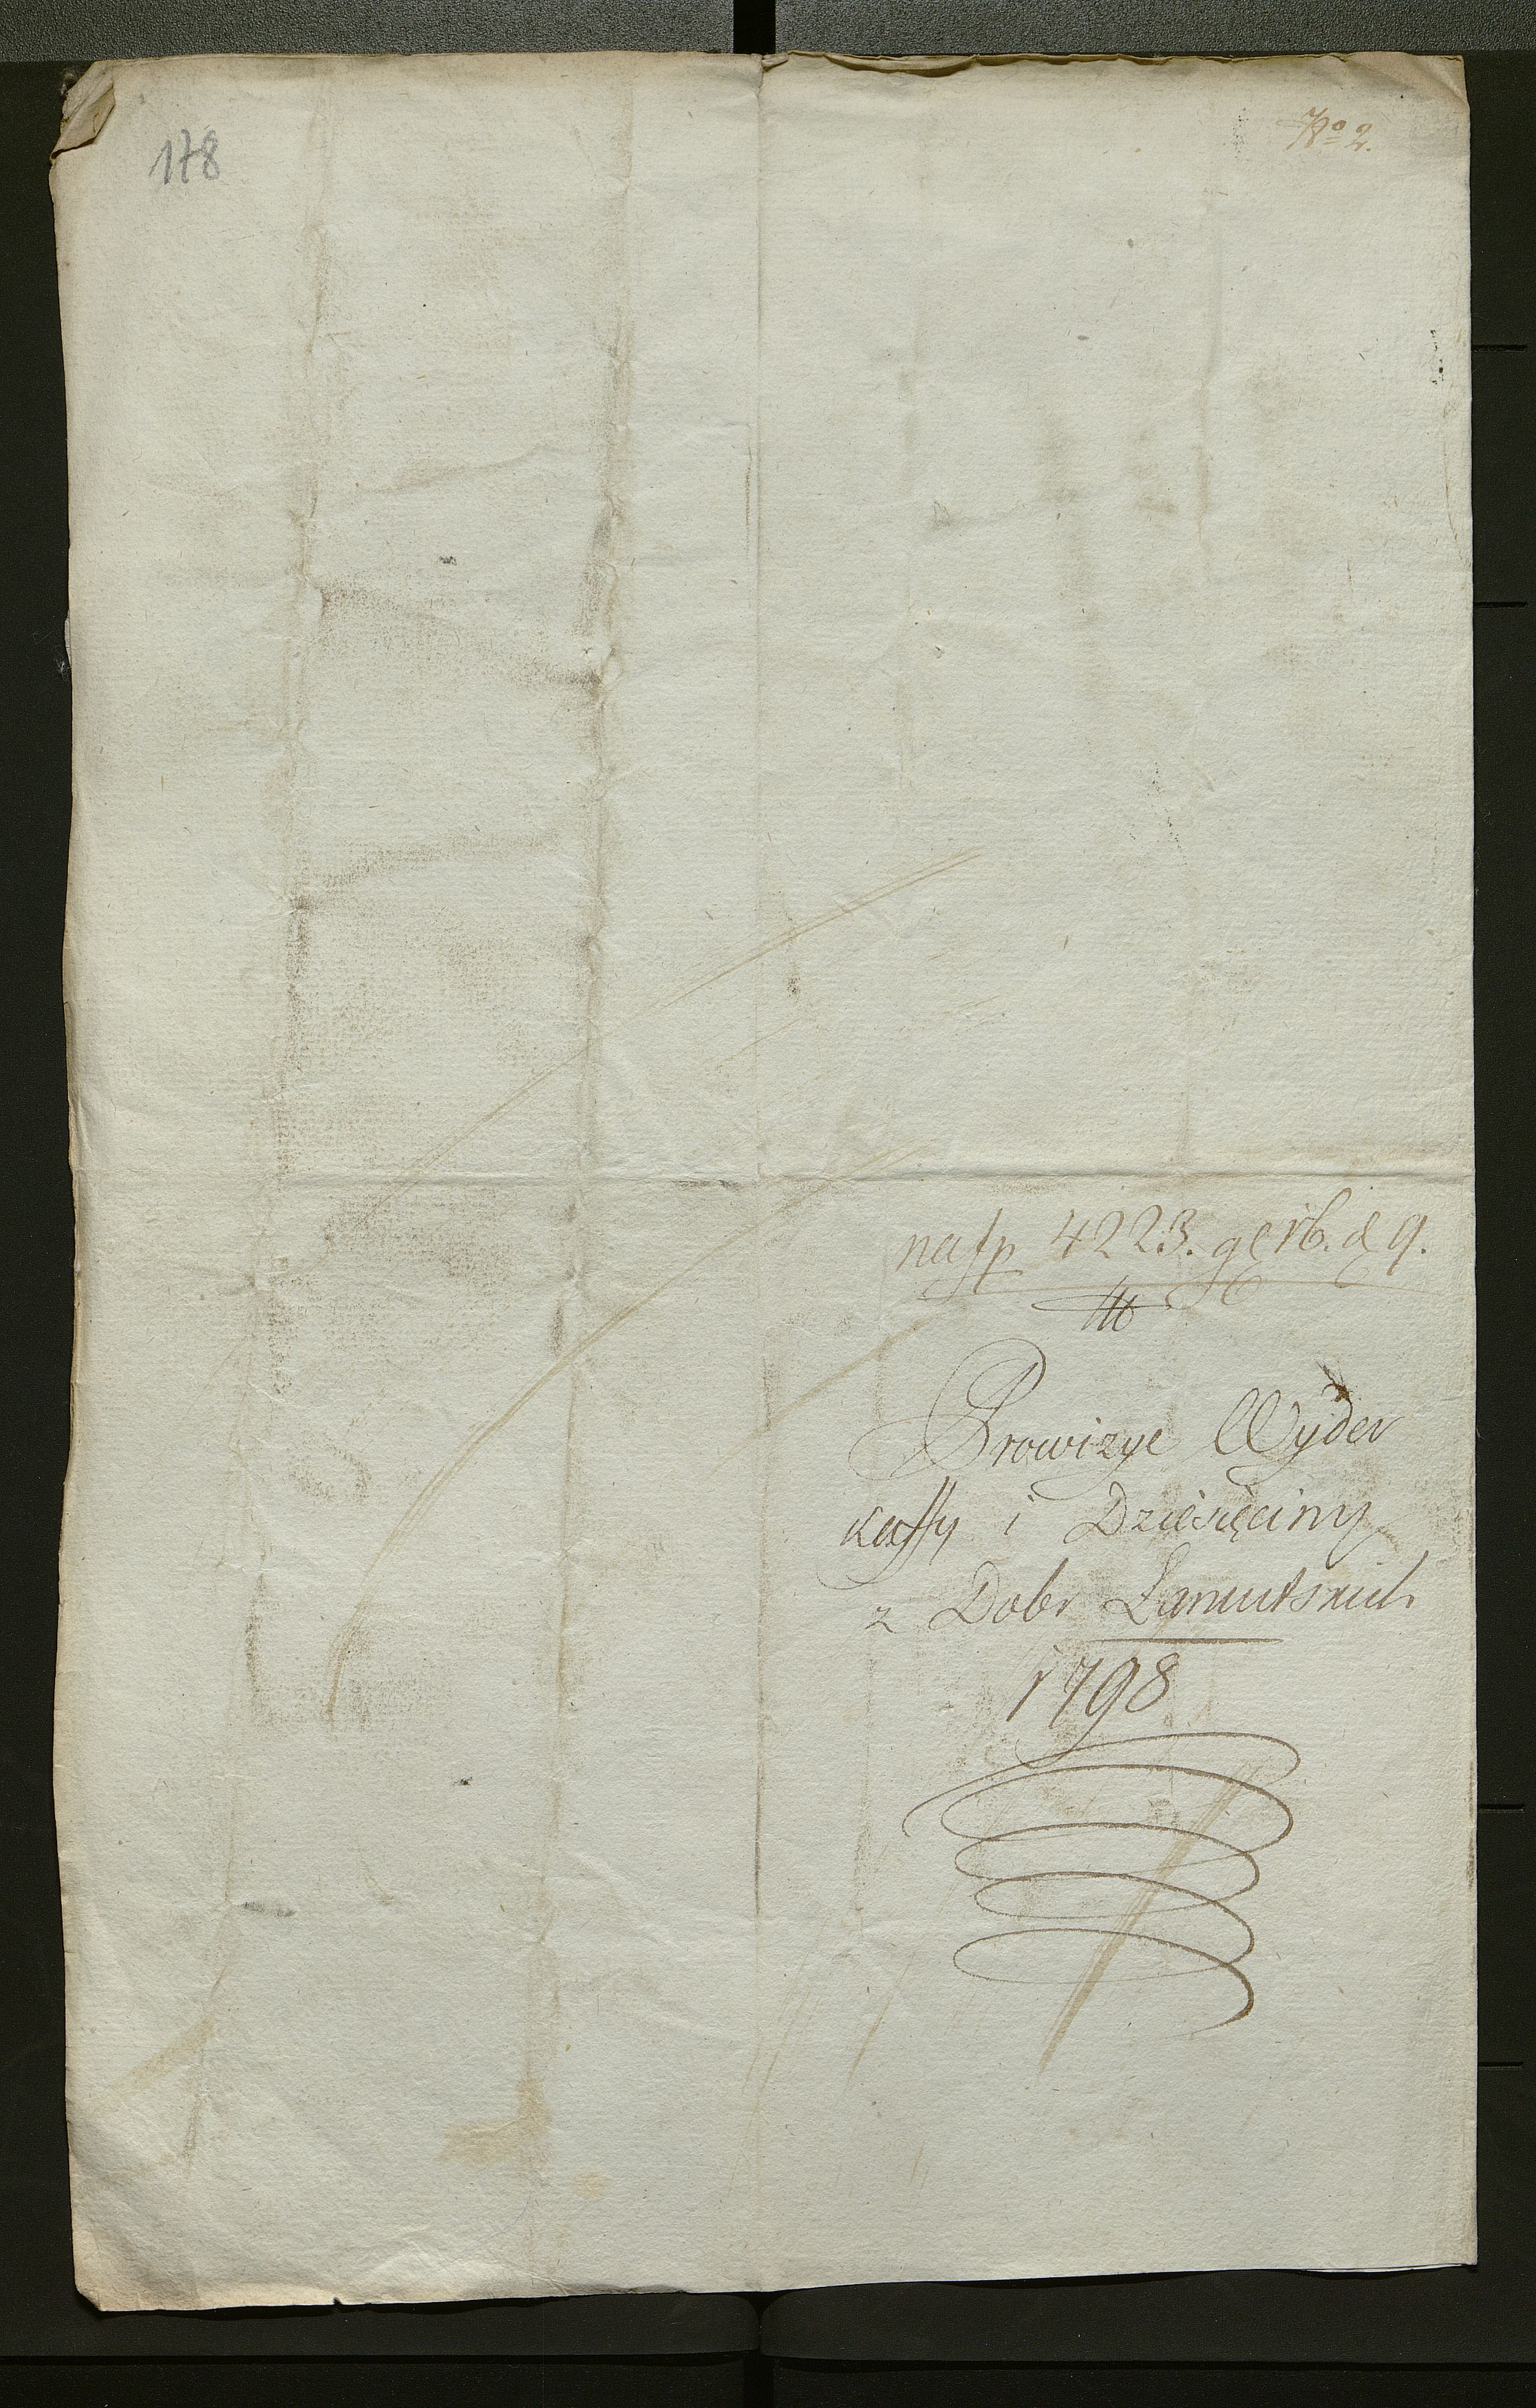 178
No 2.
na fp 4223. g 16. d 9.
Prowizye Wyder
kaffy i Dziesięciny
z Dobr Lancutskich
1798